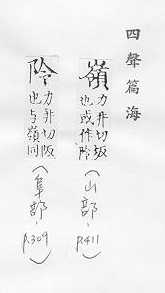 四聲篇海
嶺
力井切坂
也或作阾
(山部、
p.411)
阾
力井切阪
也与嶺同
(阜部、
p.309)